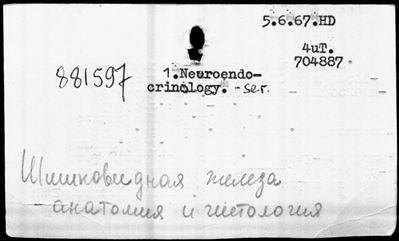 5.6.67.HD
4uT.
704887
881597
1.Neuroendo-
crinology. -ser.
Шишковидная железа
- анатомия и гистология